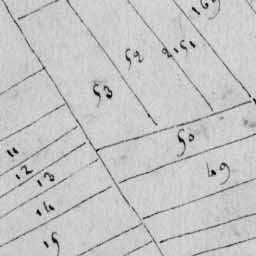 169
2151
52
53
50
49
11
12
13
14
15